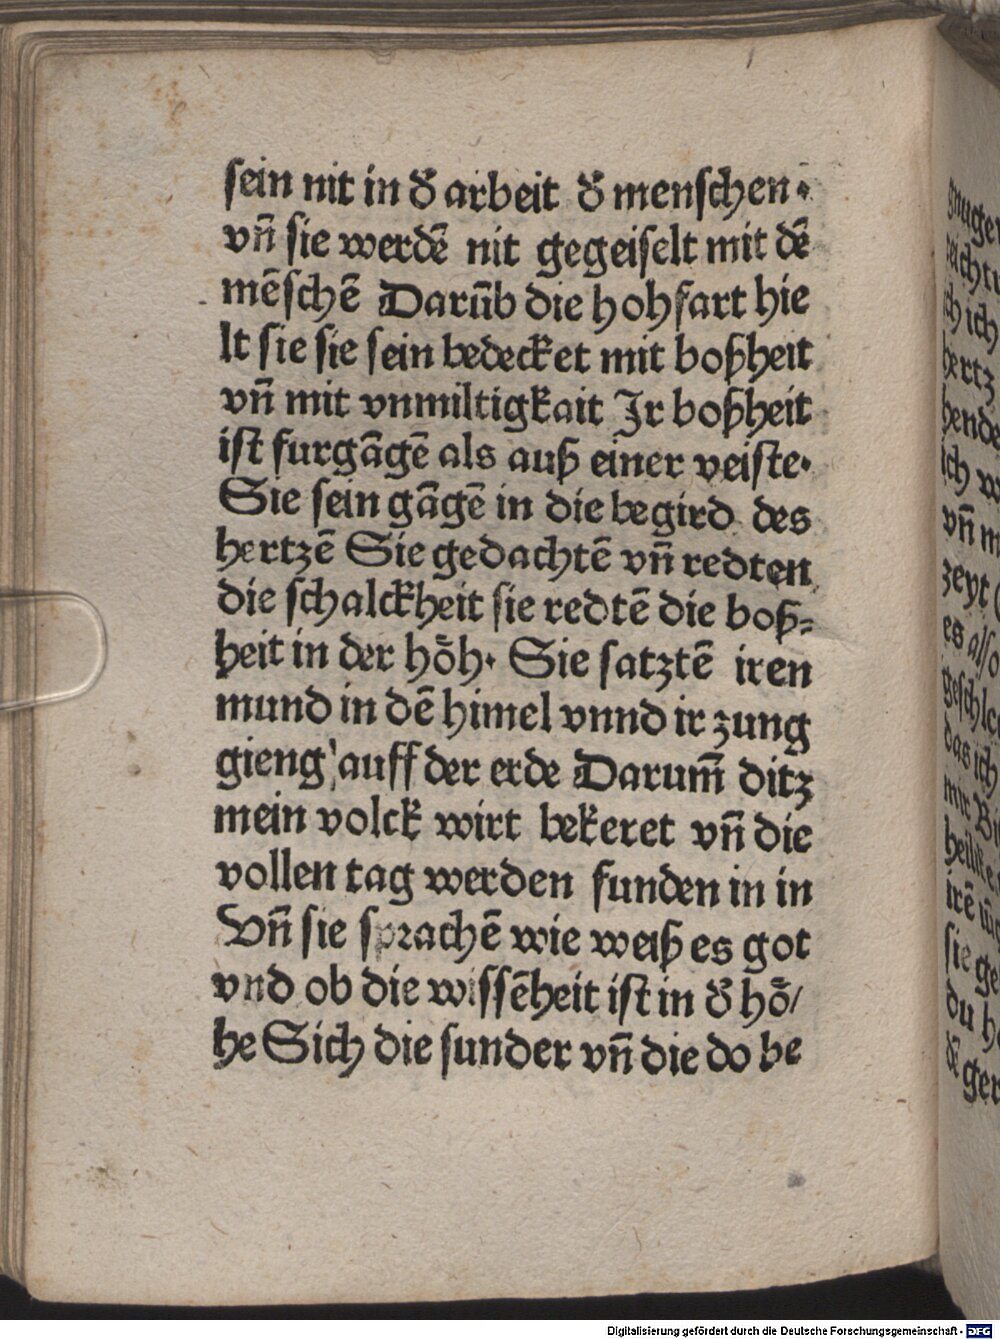 sein nit in d̄ arbeit d̄ menschen·
vn̄ sie werdē nit gegeiselt mit dē
mēschē Darūb die hohfart hie
lt sie sie sein bedecket mit boßheit
vn̄ mit vnmiltigkait Jr boßheit
ist furgāgē als auß einer veiste·
Sie sein gāgē in die begird des
hertzē Sie gedachtē vn̄ redten
die schalckheit sie redtē die boß⸗
heit in der hoͤh· Sie satztē iren
mund in dē himel vnnd ir zung
gieng auff der erde Darum̄ ditz
mein volck wirt bekeret vn̄ die
vollen tag werden funden in in
Vn̄ sie sprachē wie weiß es got
vnd ob die wissēheit ist in d̄ hoͤ/
he Sich die sunder vn̄ die do be
Digitalisierung gefördert durch die Deutsche Forschungsgemeinschaft - DFG